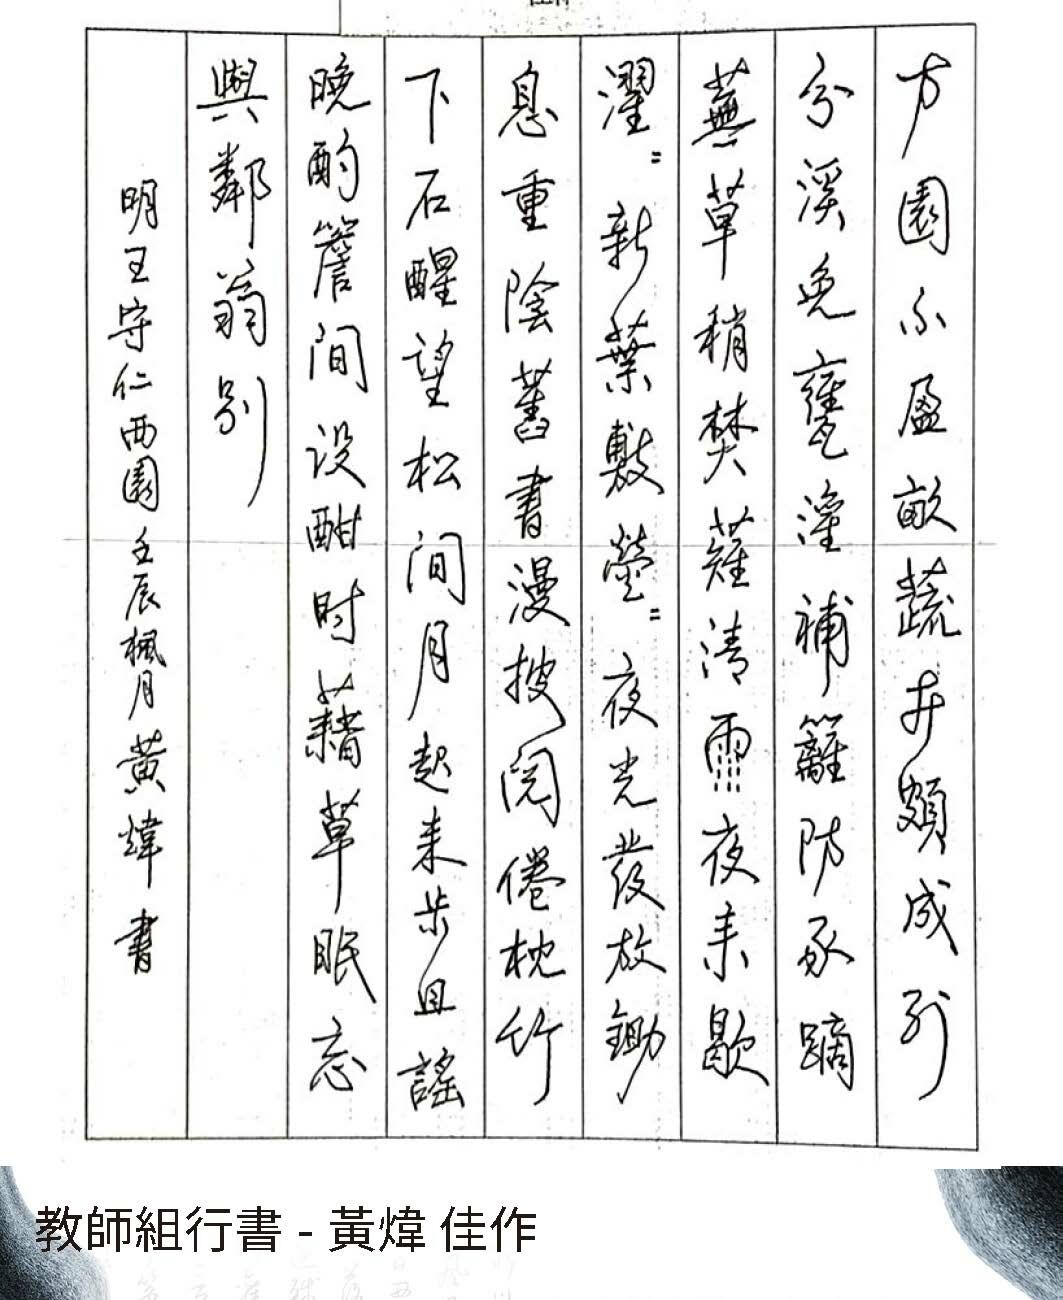 方園不盈畝蔬卉頗成列
分溪免甕灌補籬防豕蹢
蕪草稍焚薙清雨夜来歇
濯〻新葉敷熒〻夜光發放鋤
息重陰舊書漫披閱倦枕竹
下石醒望松间月起来步且謠
晚酌簷间设酣时藉草眠忘
與鄰翁別
明王守仁西園壬辰楓月黃煒書
教師組行書 - 黃煒 佳作